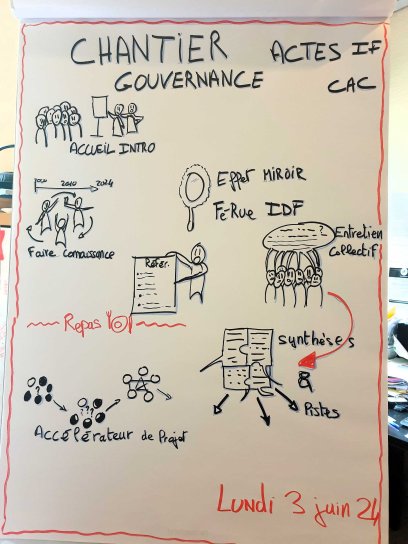 CHANTIER ACTES IF
GOUVERNANCE CAC
ACCUEIL INTRO
2010 2024
Faire connaissance
Effet MIROIR
Fé-Rue IDF
Référ.
?
Entretien
Collectif
Repas
Synthèses
Pistes
???
Accélérateur de Projet
Lundi 3 juin 24